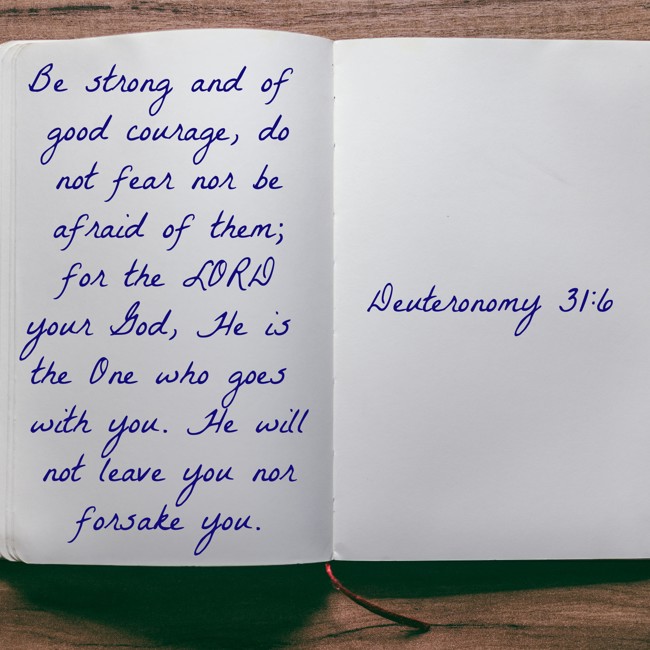 Be strong and of
good courage, do
not fear nor be
afraid of them;
for the LORD
your God, He is
the One who goes
with you. He will
not leave you nor
forsake you.
Deuteronomy 31:6